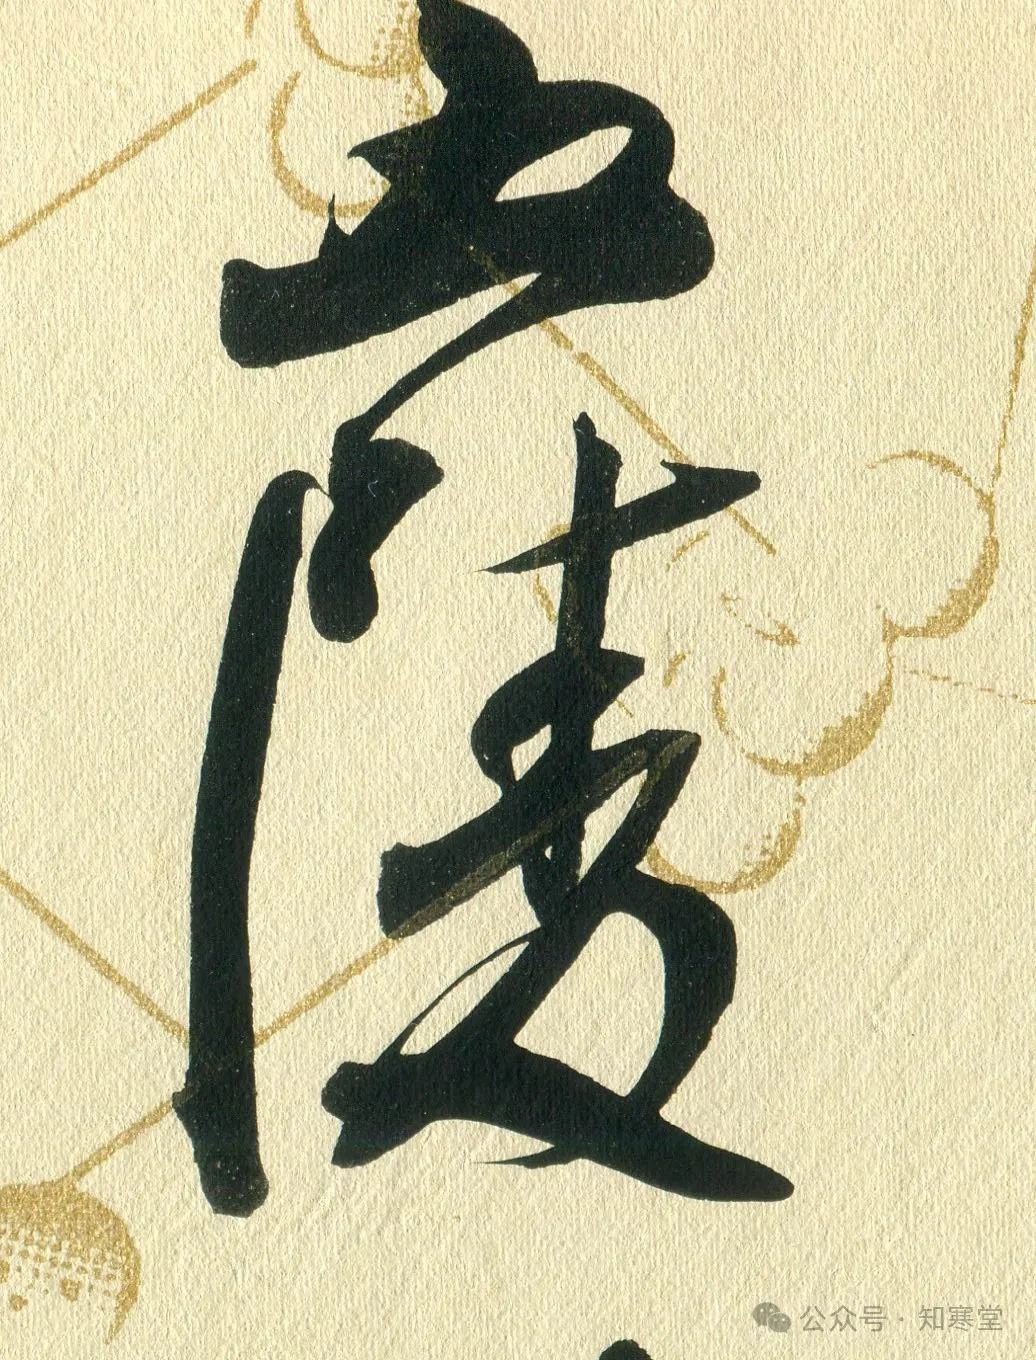 五
陵
公众号·知寒堂